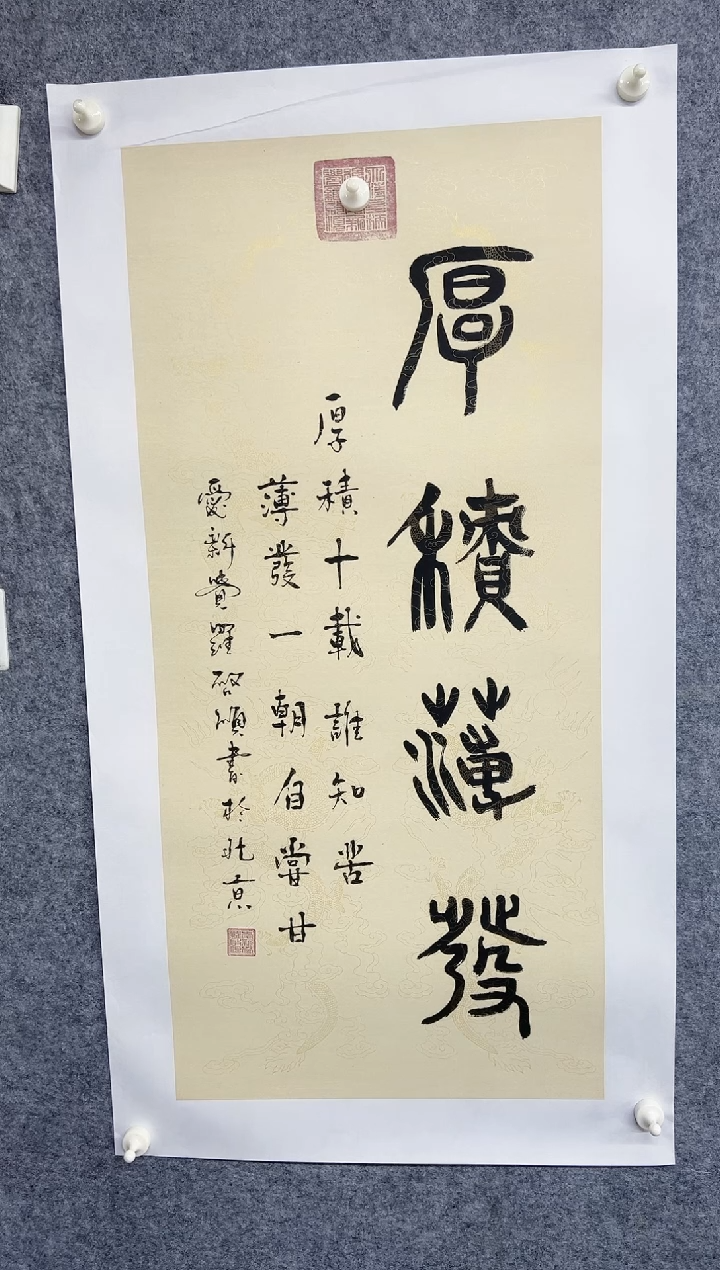 厚積薄發
厚積十載誰知苦
薄發一朝自嘗甘
愛新覺羅啟頌書於北京